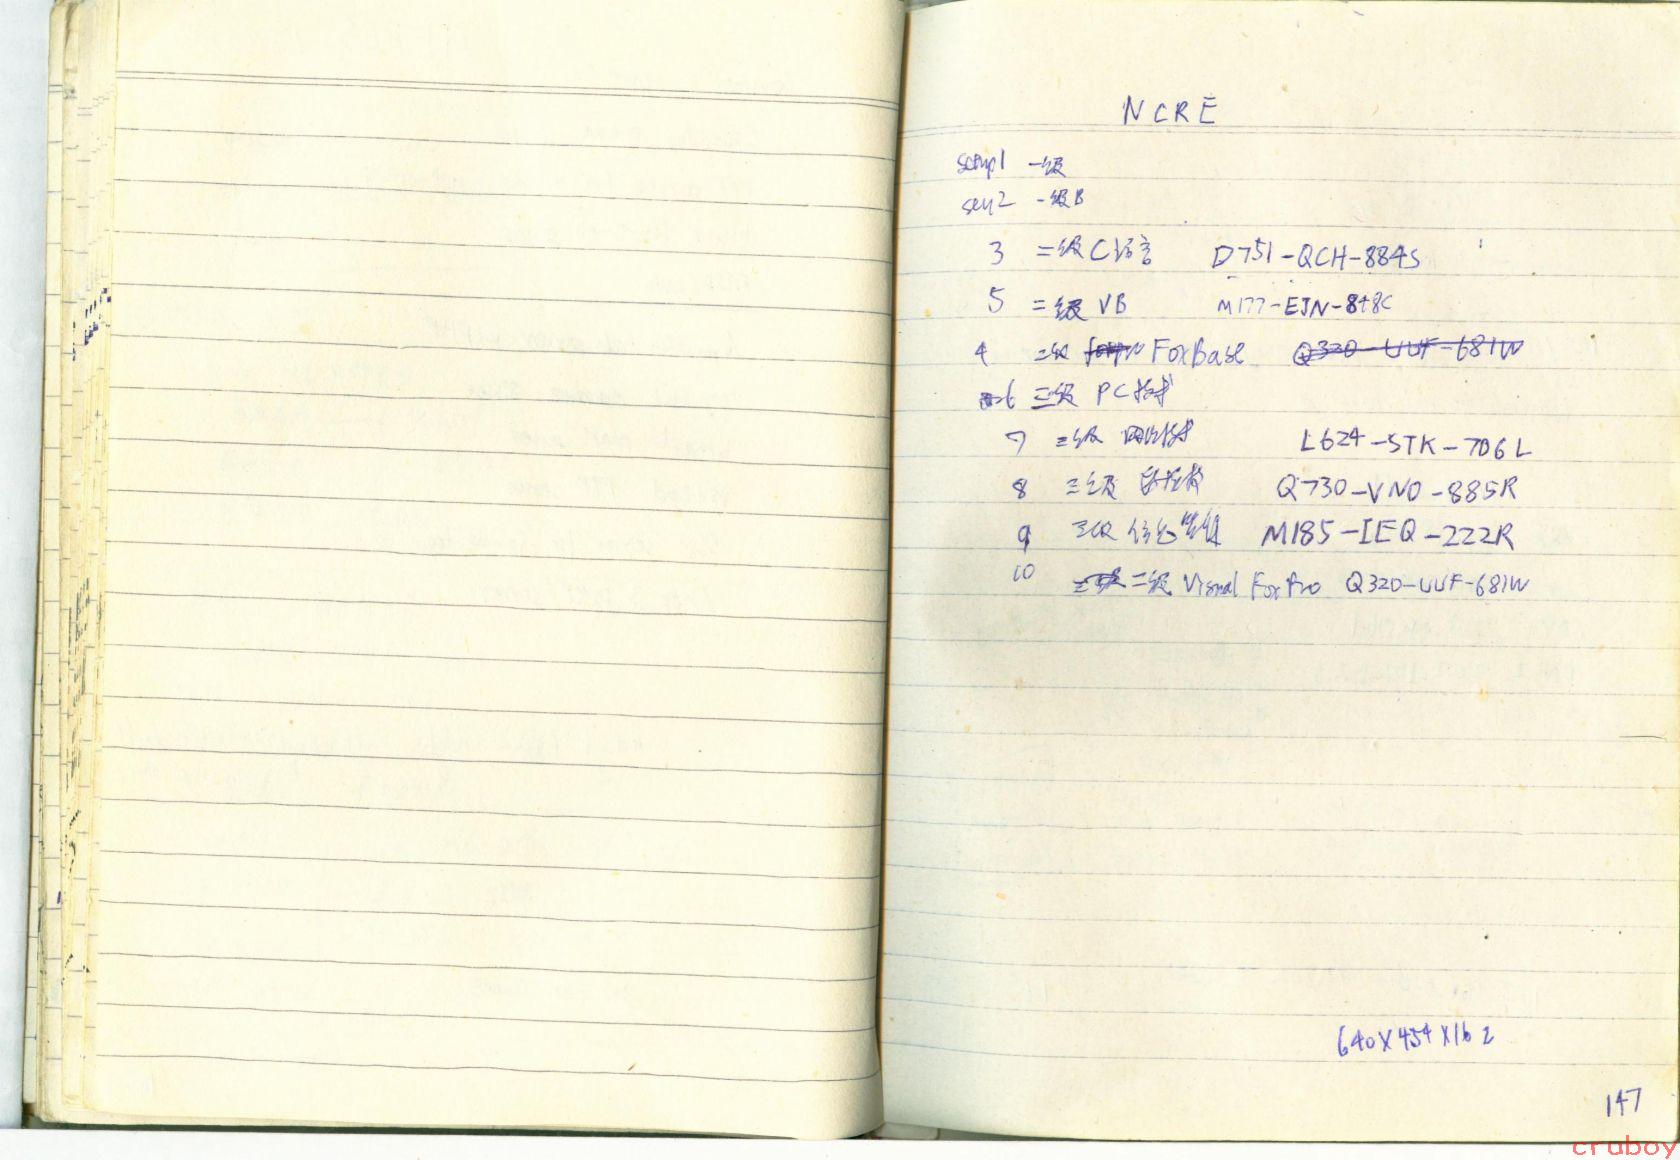 NCRE
setup1 一级
setup2 一级B
3 二级C语言 D751-QCH-884S
5 二级 VB M177-EJN-848C
4 二级 FoxBase Q320-UUF-681W
6 三级 PC技术
7 三级 网络技术 L624-STK-706L
8 三级 数据库 Q730-VNO-885R
9 三级 信息管理 M185-IEQ-222R
10 二级 Visual FoxPro Q320-UUF-681W
640X454X16 2
147
cruboy